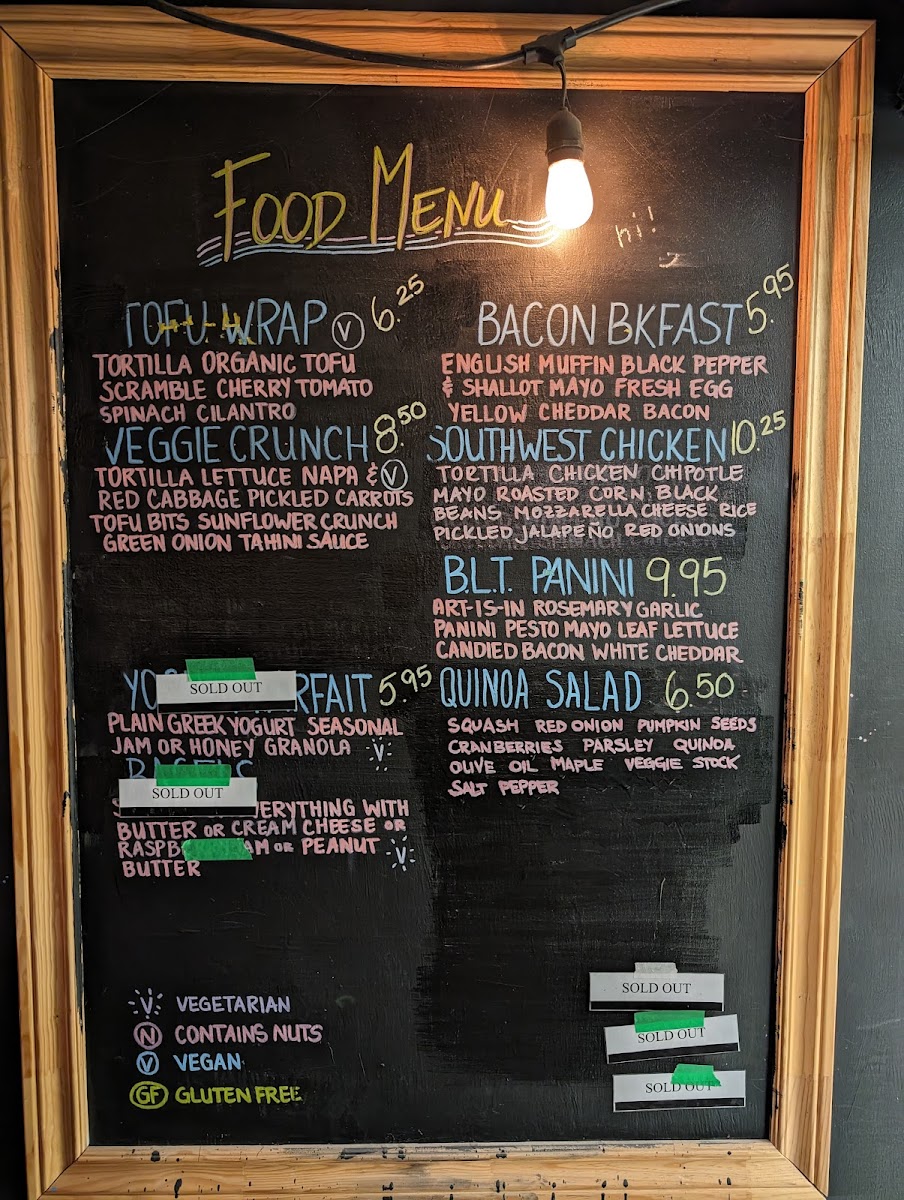 FOOD MENU
hi!
TOFU WRAP V 6.25
TORTILLA ORGANIC TOFU
SCRAMBLE CHERRY TOMATO
SPINACH CILANTRO
VEGGIE CRUNCH 8.50
TORTILLA LETTUCE NAPA & V
RED CABBAGE PICKLED CARROTS
TOFU BITS SUNFLOWER CRUNCH
GREEN ONION TAHINI SAUCE
SOLD OUT
5.95
PLAIN GREEK YOGURT SEASONAL
JAM OR HONEY GRANOLA V
BAGELS
SOLD OUT
WITH
BUTTER OR CREAM CHEESE OR
OR PEANUT V
BUTTER
BACON BKFAST 5.95
ENGLISH MUFFIN BLACK PEPPER
& SHALLOT MAYO FRESH EGG
YELLOW CHEDDAR BACON
SOUTHWEST CHICKEN 10.25
TORTILLA CHICKEN CHIPOTLE
MAYO ROASTED CORN BLACK
BEANS MOZZARELLA CHEESE RICE
PICKLED JALAPEÑO RED ONIONS
B.L.T. PANINI 9.95
ART-IS-IN ROSEMARY GARLIC
PANINI PESTO MAYO LEAF LETTUCE
CANDIED BACON WHITE CHEDDAR
QUINOA SALAD 6.50
SQUASH RED ONION PUMPKIN SEEDS
CRANBERRIES PARSLEY QUINOA
OLIVE OIL MAPLE VEGGIE STOCK
SALT PEPPER
V VEGETARIAN
N CONTAINS NUTS
V VEGAN
GF GLUTEN FREE
SOLD OUT
SOLD OUT
SOLD OUT